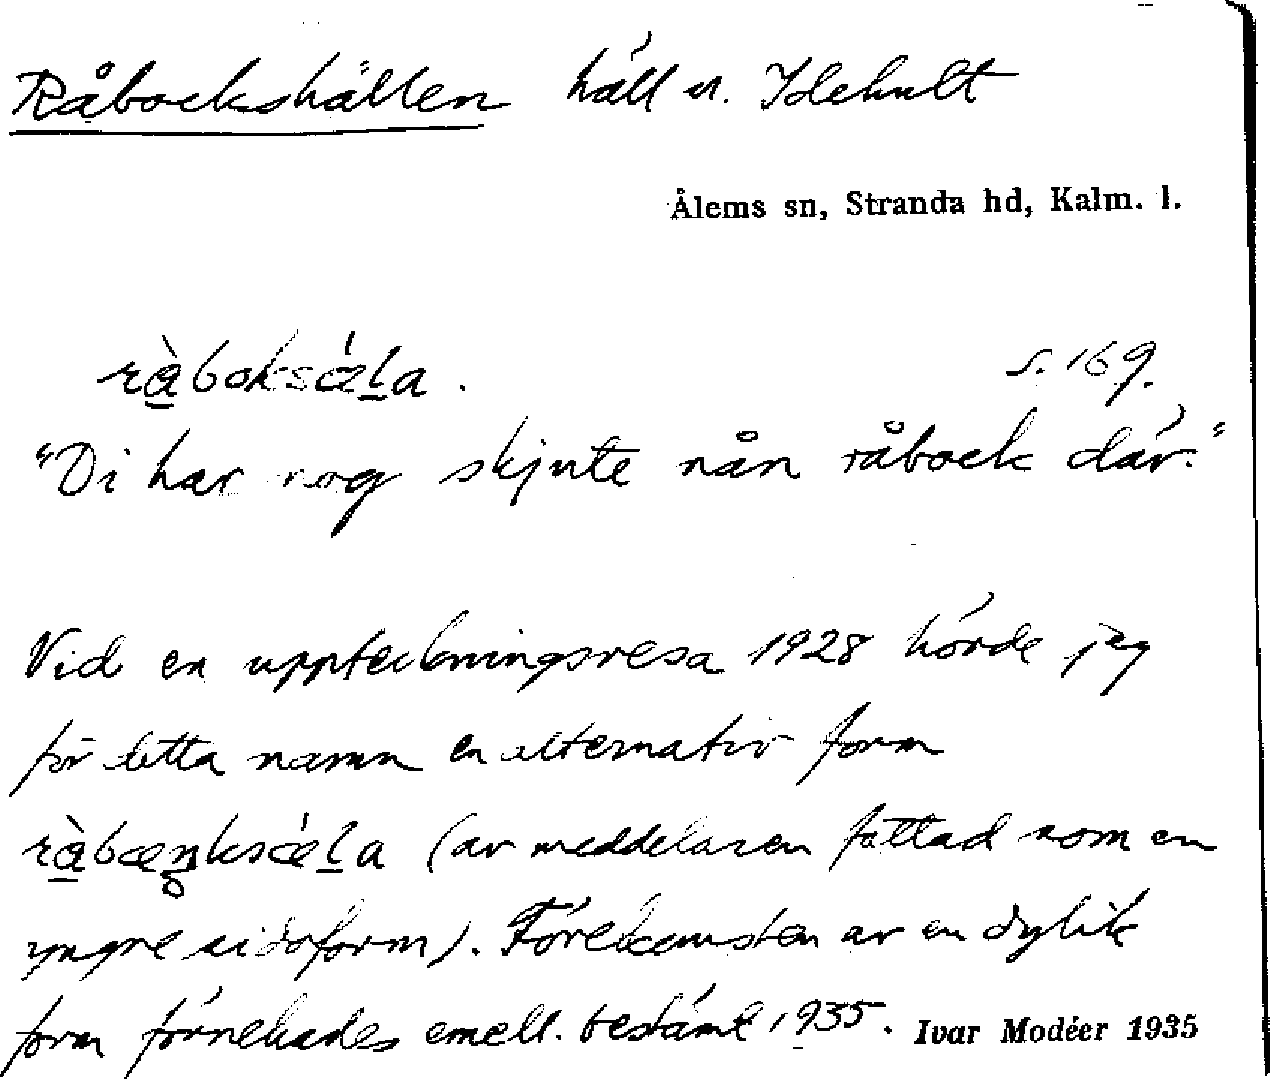 Råbockshällen häll n. Idehult
Ålems sn, Stranda hd, Kalm. l.
ràboksǽla. s. 169.
"Di har nog skjute nån råbock där."
Vid en uppteckningsresa 1928 hörde jag
för detta namn en alternativ form
ràbæŋ̊ksǽla (av meddelaren fattad som en
yngre sidoform). Förekomsten av en dylik
form förnekades emell. bestämt 1935. Ivar Modéer 1935